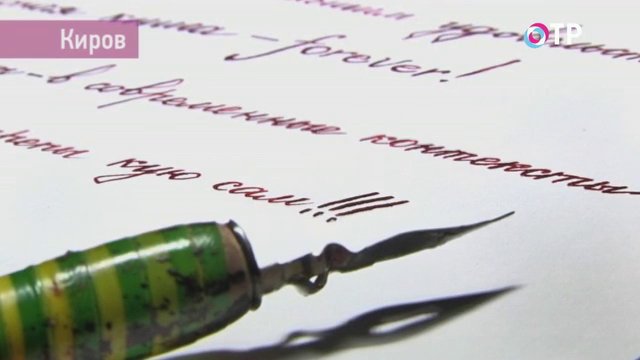 Киров
ОТР
книга - forever!
- в современные контексты
кую сам!!!!